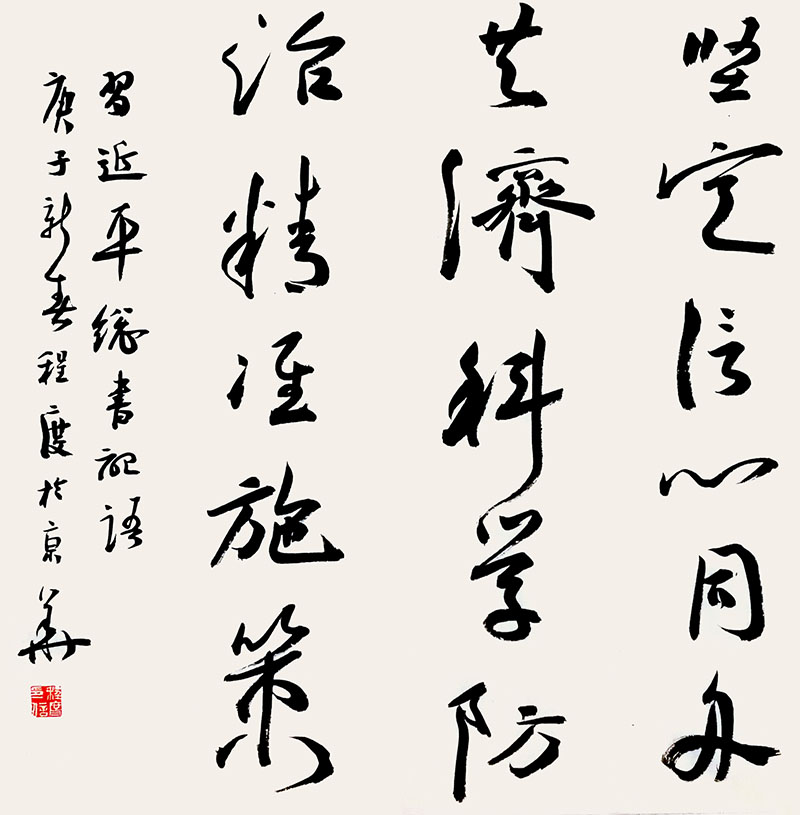 坚定信心同舟
共济科学防
治精准施策
習近平総書記語
庚子新春程度於京華